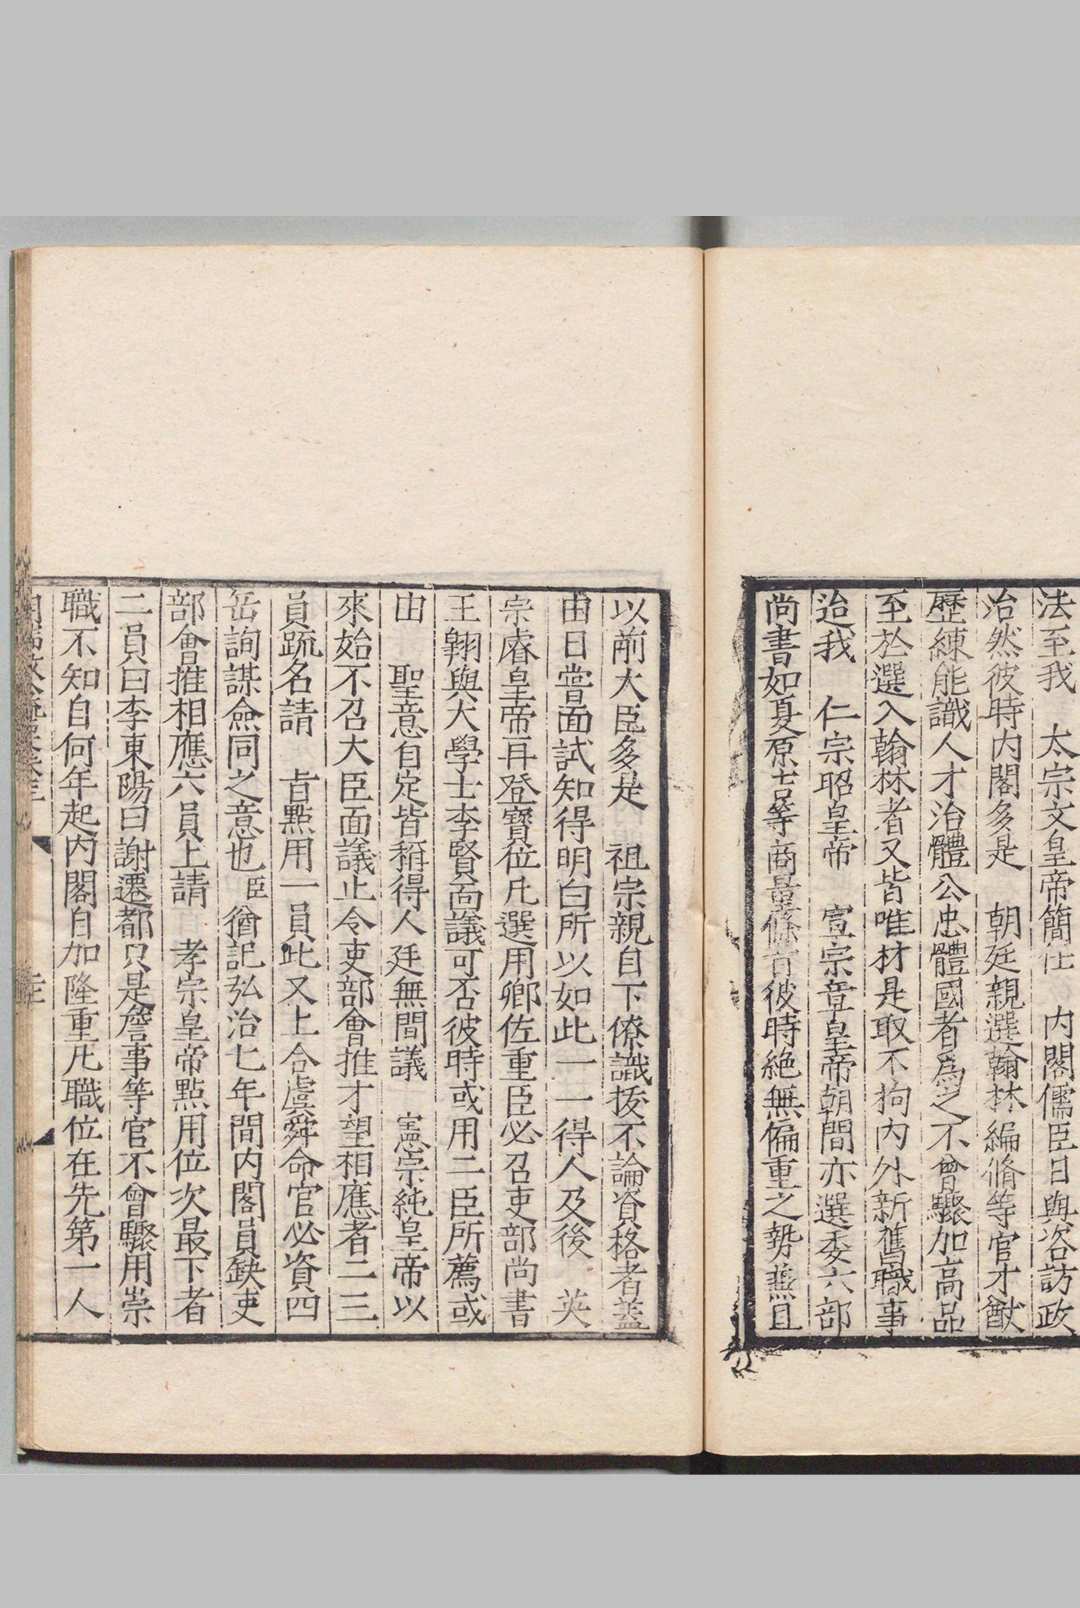 法至我 太宗文皇帝簡任 内閣儒臣日與咨訪政
治然彼時内閣多是 朝廷親選翰林編脩等官才猷
歷練能識人才治體公忠體國者爲之不曾驟加高品
至於選入翰林者又皆唯材是取不拘内外新舊職事
迨我 仁宗昭皇帝 宣宗章皇帝朝間亦選委六部
尚書如夏原吉等商量條旨彼時絶無偏重之勢燕且
以前大臣多是 祖宗親自下僚識拔不論資格者蓋
由日嘗面試知得明白所以如此一一得人及後 英
宗睿皇帝再登寶位凡選用卿佐重臣必召吏部尚書
王翱與大學士李賢面議可否彼時或用二臣所薦或
由 聖意自定皆稱得人廷無間議 憲宗純皇帝以
來始不召大臣面議止令吏部會推才望相應者二三
員疏名請 旨點用一員此又上合虞舜命官必資四
岳詢謀僉同之意也臣猶記弘治七年間内閣員缺吏
部會推相應六員上請 孝宗皇帝點用位次最下者
二員曰李東陽曰謝遷都只是詹事等官不曾驟用崇
職不知自何年起内閣自加隆重凡職位在先第一人